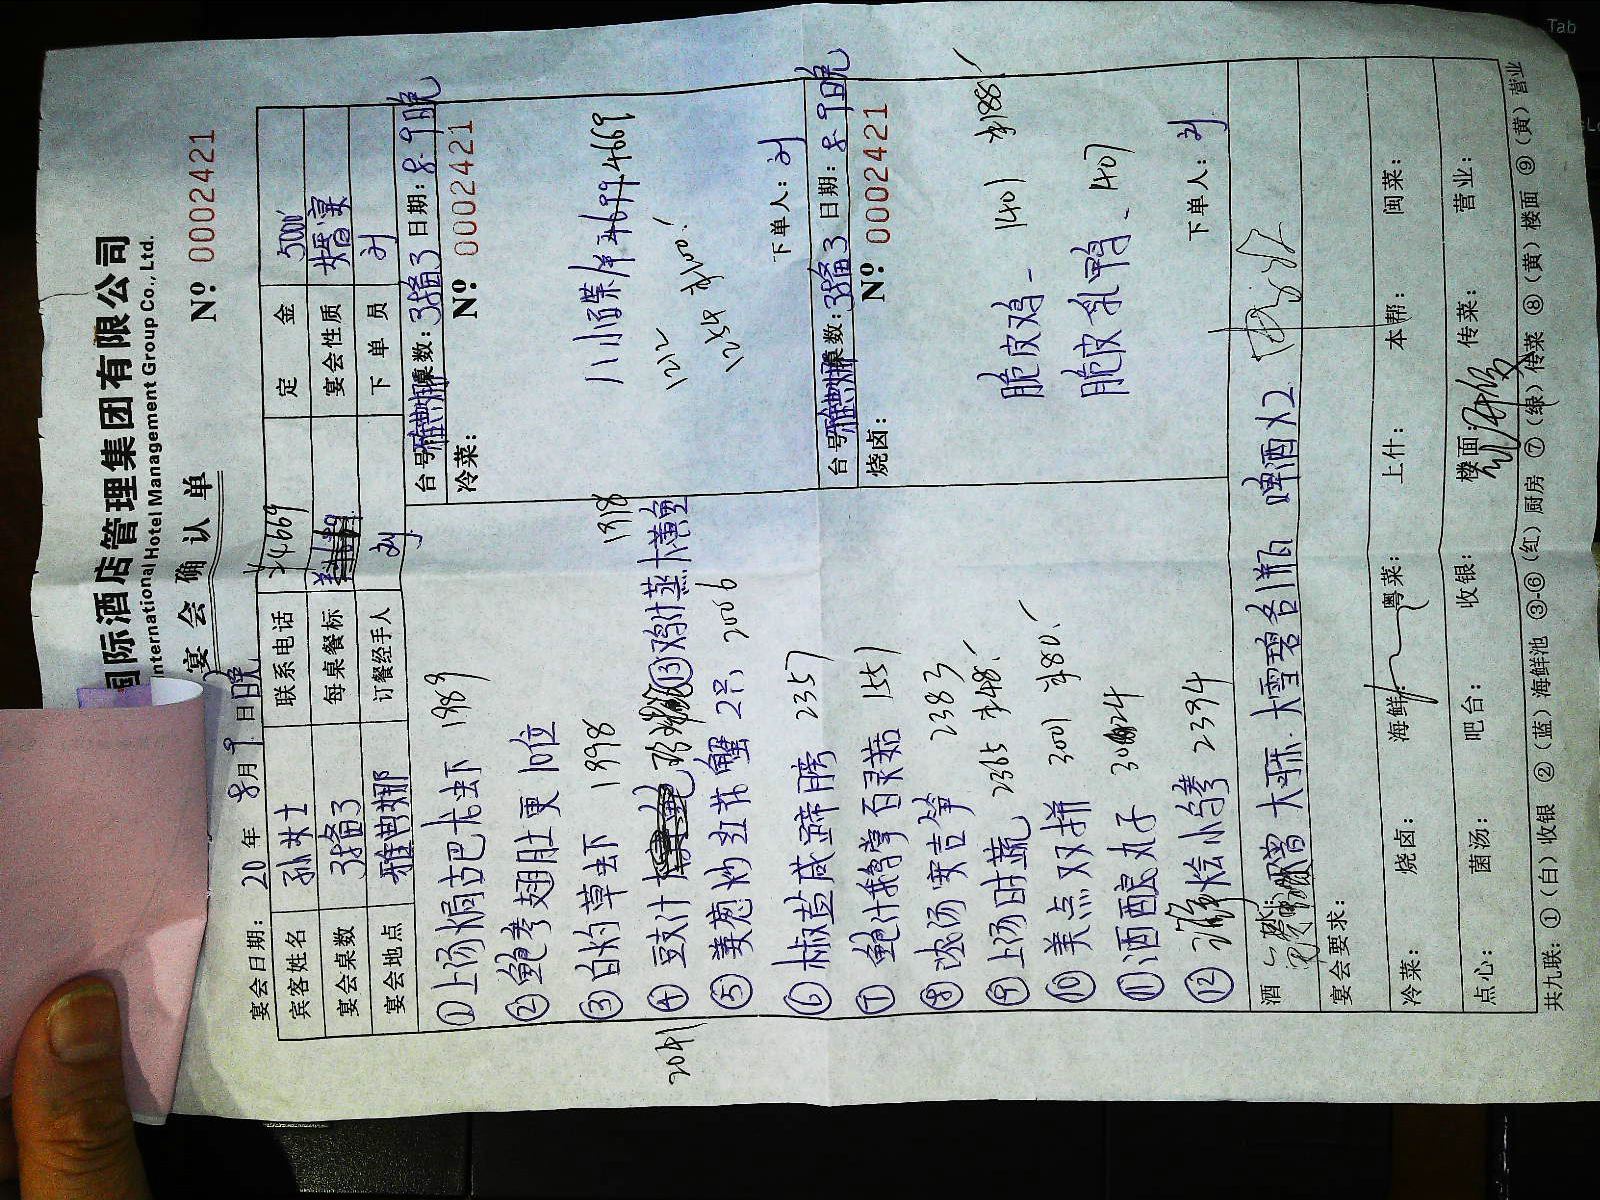 国际酒店管理集团有限公司
International Hotel Management Group Co., Ltd.
宴会确认单
Nº 0002421
宴会日期: 20 年 8月9日晚
宾客姓名 孙女士 联系电话 定金 5000
宴会桌数 3备3 每桌餐标 宴会性质 婚宴
宴会地点 雅典娜 订餐经手人 刘 下单员 刘
①上汤焗古巴龙虾 1989
②鲍参翅肚更 10位
③白灼草虾 1998
④豉汁
⑬鸡汁蒸大黄鱼 1318
2041
⑤姜葱炒红花蟹2只 2006
⑥椒盐咸蹄膀 2357
⑦鲍汁鹅掌百灵菇 1551
⑧浓汤安吉笋 2383
⑨上汤时蔬 2365 ¥48.-
⑩美点双拼 3001 ¥80.-
⑪酒酿丸子
⑫烩乌参 2394
台号 雅典娜 桌数: 3备3 日期: 8.9日晚
冷菜: Nº 0002421
八小碟 4669
1212
1254 ¥100.-
下单人: 刘
台号 雅典娜 桌数: 3备3 日期: 8.9日晚
烧卤: Nº 0002421
脆皮鸡 - 1401 ¥188.-
脆皮乳鸭 - 1407
下单人: 刘
酒水: 赠 大可乐.大雪碧各1瓶 啤酒X2
宴会要求:
冷菜: 烧卤: 海鲜: 粤菜: 上什: 本帮: 闽菜:
点心: 菌汤: 吧台: 收银: 楼面: 传菜: 营业:
共九联: ①(白)收银 ②(蓝)海鲜池 ③-⑥(红)厨房 ⑦(绿)传菜 ⑧(黄)楼面 ⑨(黄)营业
Tab